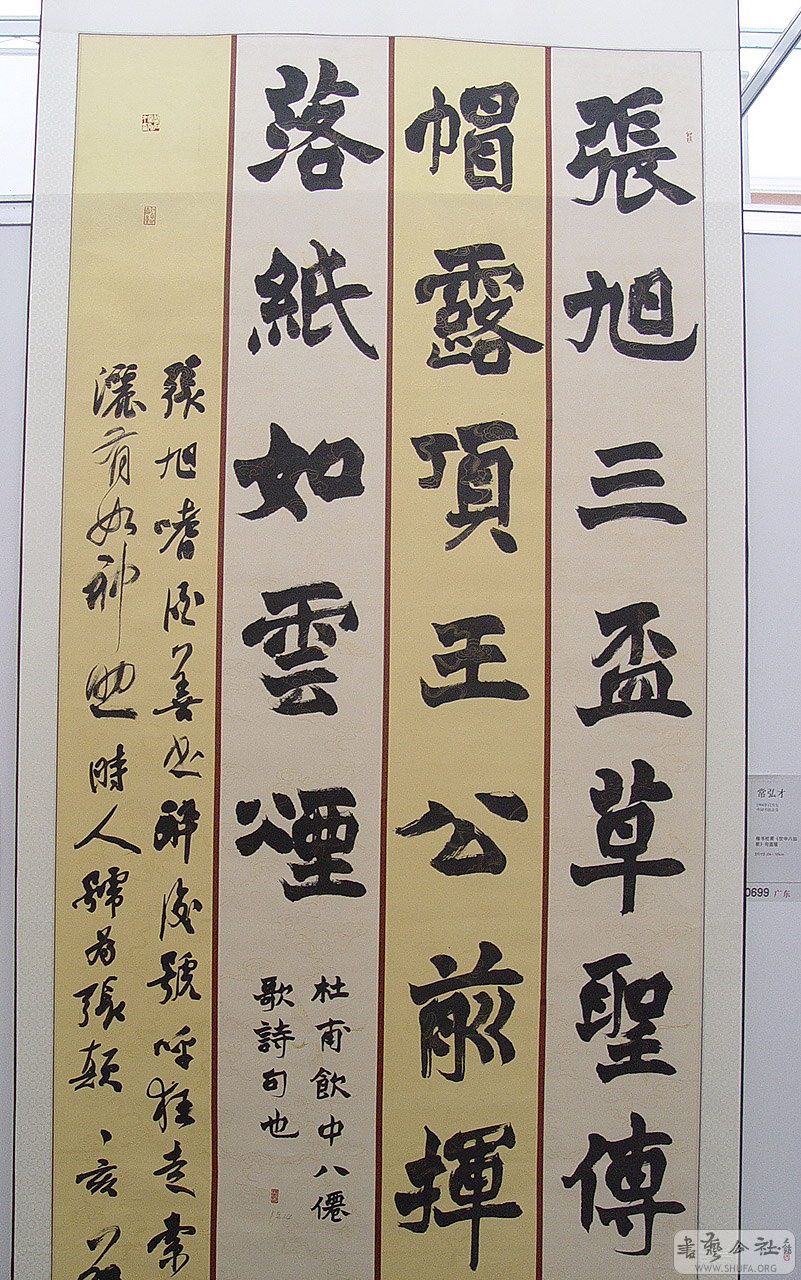 張旭三盃草聖傳
帽露頂王公前揮
落紙如雲煙
杜甫飲中八僊
歌詩句也
張旭嗜酒善書醉後號呼狂走索
灑有如神也時人號為張顛
常弘才
0699 广东
WWW.SHUFA.ORG